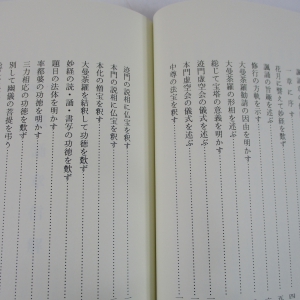 章に序す
花月に擬えて妙経を歎ず
誦の旨趣を述ぶ
修行の方軌を示す
大曼荼羅勧請の因由を明かす
大曼荼羅の形相を述ぶ
総じて宝塔の意義を明かす
迹門虚空会の儀式を述ぶ
本門虚空会の儀式を述ぶ
中尊の法宝を釈す
迹門の説相に仏宝を釈す
本門の説相に仏宝を釈す
本化の僧宝を釈す
大曼荼羅を結釈して功徳を歎ず
妙経の読・誦・書写の功徳を歎ず
題目の法体を明かす
率都婆の功徳を明かす
三力相応の功徳を歎ず
別して幽儀の菩提を弔う